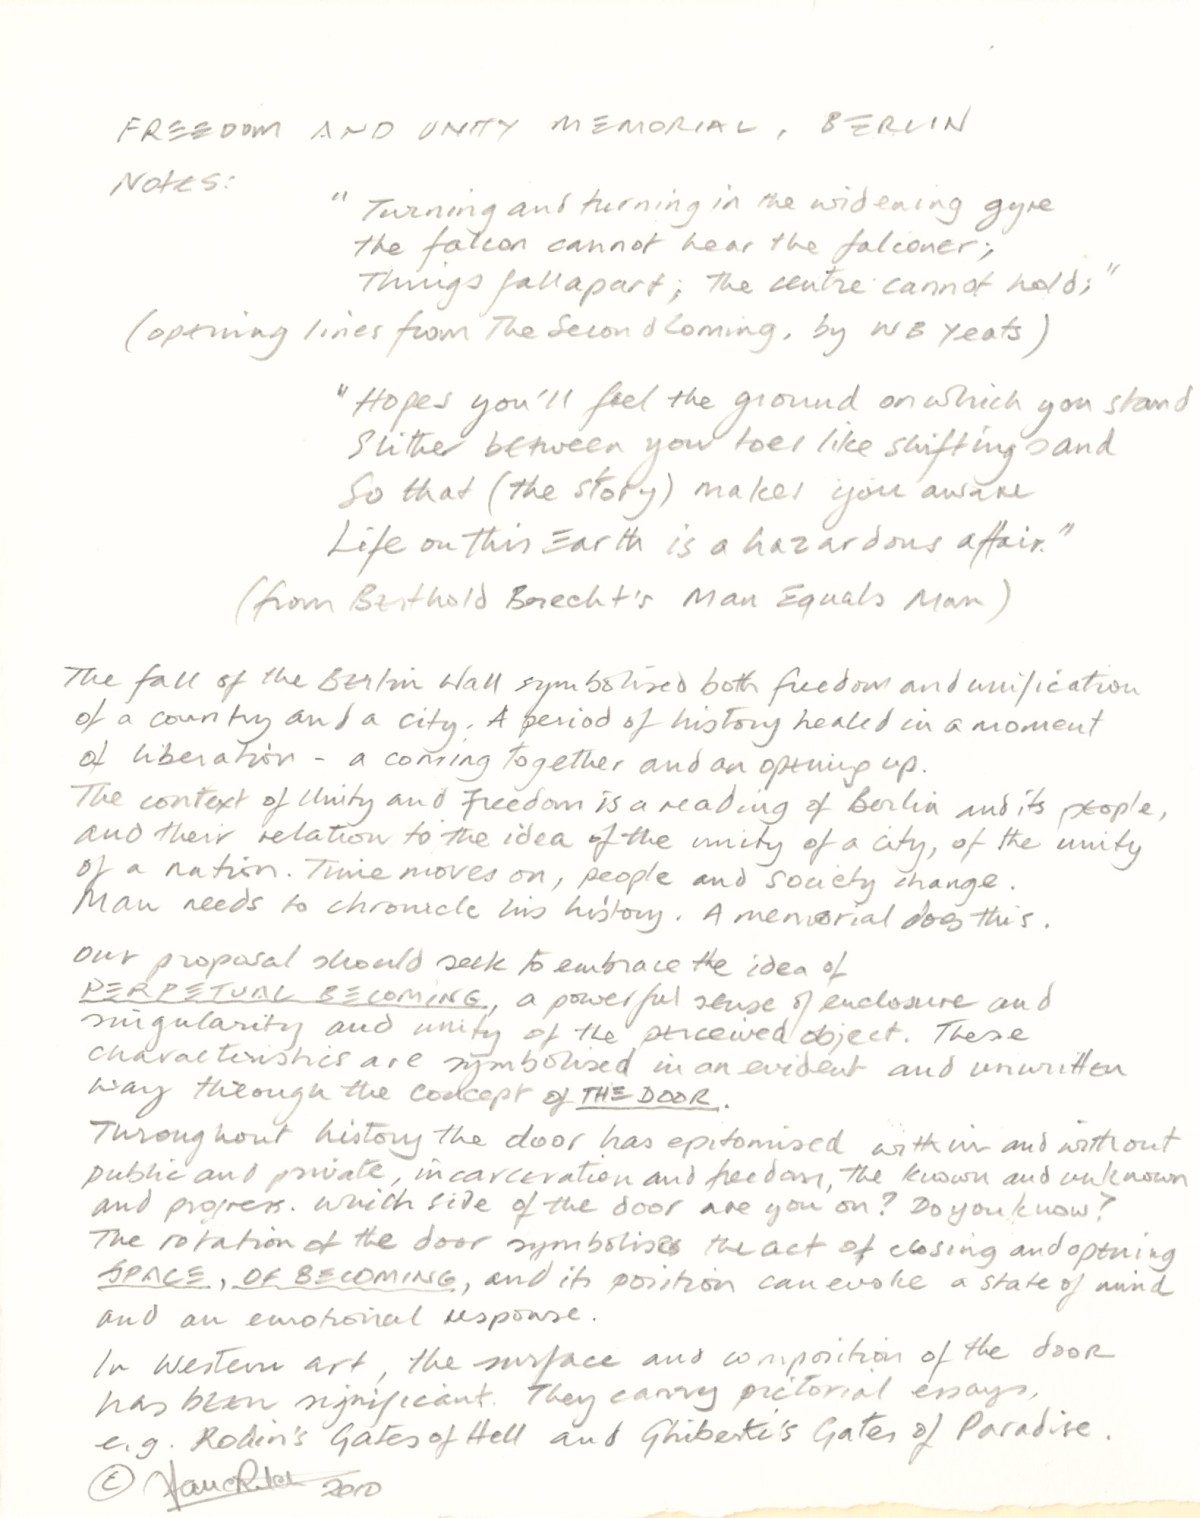 FREEDOM AND UNITY MEMORIAL, BERLIN
Notes:
"Turning and turning in the widening gyre
the falcon cannot hear the falconer;
Things fall apart; the centre cannot hold;"
(opening lines from The Second Coming, by WB Yeats)
"Hopes you'll feel the ground on which you stand
Slither between your toes like shifting sand
So that (the story) makes you aware
Life on this Earth is a hazardous affair."
(from Berthold Brecht's Man Equals Man)
The fall of the Berlin Wall symbolised both freedom and unification
of a country and a city. A period of history healed in a moment
of liberation - a coming together and an opening up.
The context of Unity and Freedom is a reading of Berlin and its people,
and their relation to the idea of the unity of a city, of the unity
of a nation. Time moves on, people and society change.
Man needs to chronicle his history. A memorial does this.
Our proposal should seek to embrace the idea of
PERPETUAL BECOMING, a powerful sense of enclosure and
singularity and unity of the perceived object. These
characteristics are symbolised in an evident and unwritten
way through the concept of THE DOOR.
Throughout history the door has epitomised within and without
public and private, incarceration and freedom, the known and unknown
and progress. Which side of the door are you on? Do you know?
The rotation of the door symbolises the act of closing and opening
SPACE, OF BECOMING, and its position can evoke a state of mind
and an emotional response.
In Western art, the surface and composition of the door
has been significant. They carry pictorial essays,
e.g. Rodin's Gates of Hell and Ghiberti's Gates of Paradise.
© 2010